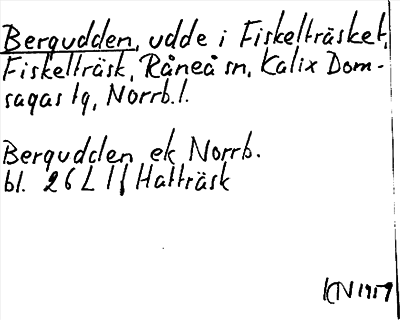 Bergudden, udde i Fiskelträsket,
Fiskelträsk, Råneå sn, Kalix Dom-
sagas tg, Norrb.l.
Bergudden ek Norrb.
bl. 26 L 1f Hatträsk
KN 1959